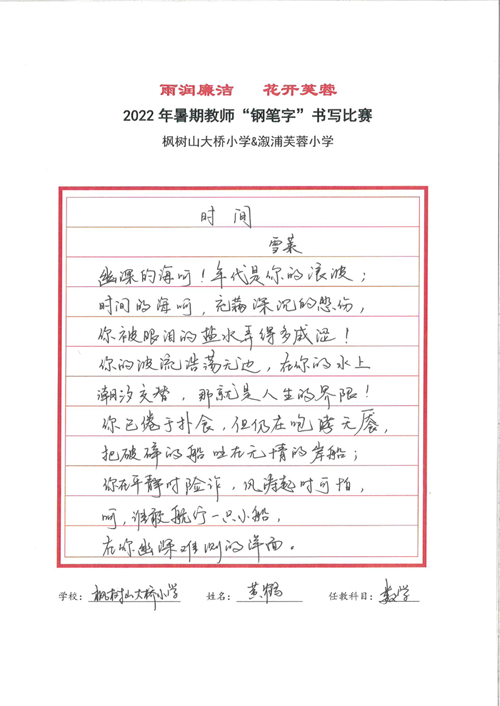 雨润廉洁 花开芙蓉
2022年暑期教师“钢笔字”书写比赛
枫树山大桥小学&溆浦芙蓉小学
时间
雪莱
幽深的海呵！年代是你的浪波；
时间的海呵，充满深沉的悲伤，
你被眼泪的盐水弄得多咸涩！
你的波流浩荡无边，在你的水上
潮汐交替，那就是人生的界限！
你已倦于扑食，但仍在咆哮无餍，
把破碎的船吐在无情的岸船；
你在平静时险诈，风涛起时可怕，
呵，谁敢航行一只小船，
在你幽深难测的洋面。
学校：枫树山大桥小学 姓名：黄 任教科目：数学